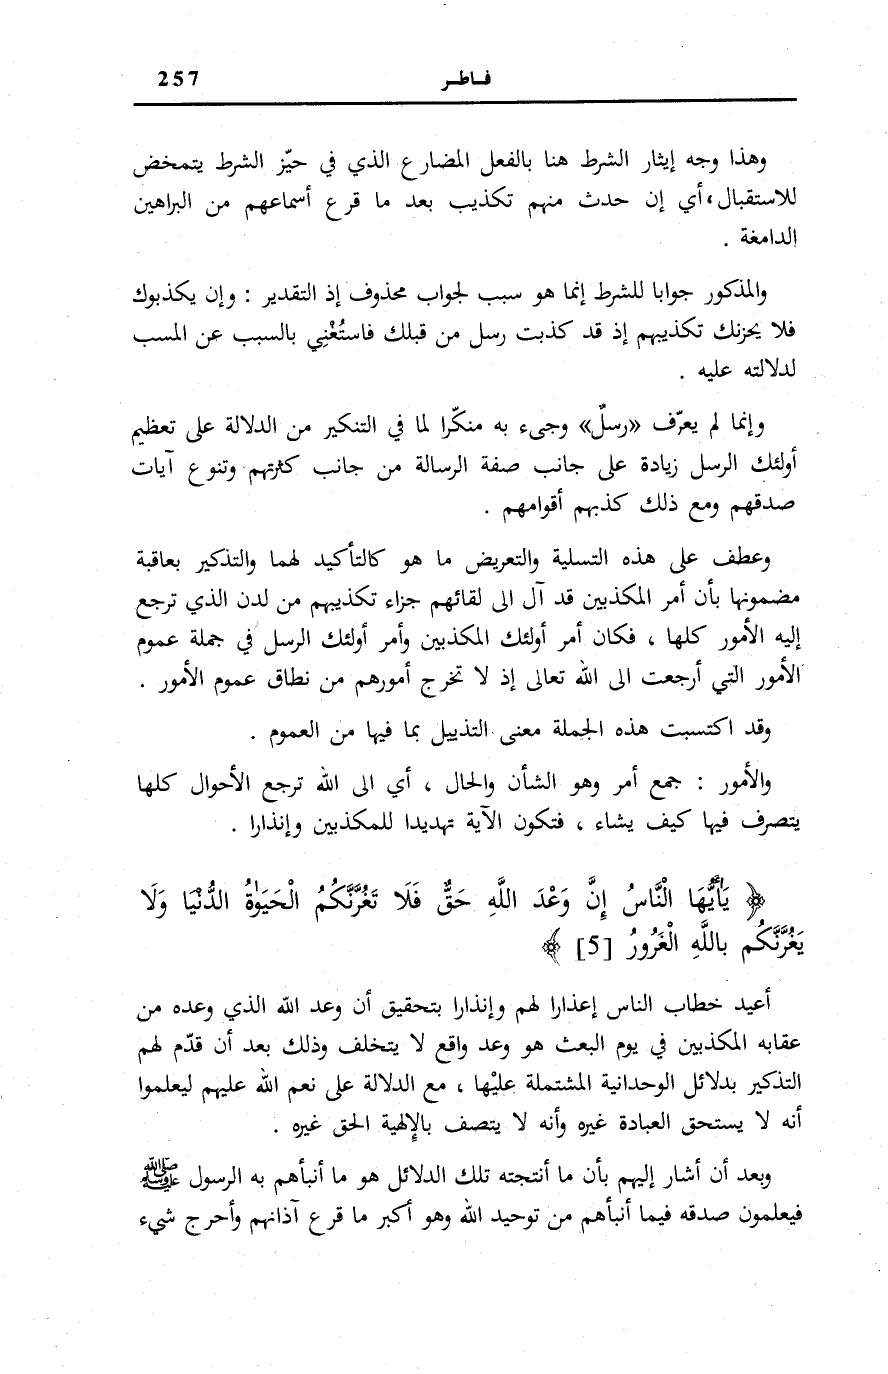 257 فـاطـر
وهذا وجه إيثار الشرط هنا بالفعل المضارع الذي في حيّز الشرط يتمخض
للاستقبال، أي إن حدث منهم تكذيب بعد ما قرع أسماعهم من البراهين
الدامغة .
والمذكور جوابا للشرط إنما هو سبب لجواب محذوف إذ التقدير : وإن يكذبوك
فلا يحزنك تكذيبهم إذ قد كذبت رسل من قبلك فاستُغْنِي بالسبب عن المسبب
لدلالته عليه .
وإنما لم يعرّف «رسلٌ» وجيء به منكّرا لما في التنكير من الدلالة على تعظيم
أولئك الرسل زيادة على جانب صفة الرسالة من جانب كثرتهم وتنوع آيات
صدقهم ومع ذلك كذبهم أقوامهم .
وعطف على هذه التسلية والتعريض ما هو كالتأكيد لهما والتذكير بعاقبة
مضمونها بأن أمر المكذبين قد آل الى لقائهم جزاء تكذيبهم من لدن الذي ترجع
إليه الأمور كلها ، فكان أمر أولئك المكذبين وأمر أولئك الرسل في جملة عموم
الأمور التي أرجعت الى الله تعالى إذ لا تخرج أمورهم من نطاق عموم الأمور .
وقد اكتسبت هذه الجملة معنى التذييل بما فيها من العموم .
والأمور : جمع أمر وهو الشأن والحال ، أي الى الله ترجع الأحوال كلها
يتصرف فيها كيف يشاء ، فتكون الآية تهديدا للمكذبين وإنذارا .
﴿ يَٰأَيُّهَا الْنَّاسُ إِنَّ وَعْدَ اللَّهِ حَقٌّ فَلَا تَغُرَّنَّكُمُ الْحَيَوٰةُ الدُّنْيَا وَلَا
يَغُرَّنَّكُم بِاللَّهِ الْغَرُورُ [5] ﴾
أعيد خطاب الناس إعذارا لهم وإنذارا بتحقيق أن وعد الله الذي وعده من
عقابه المكذبين في يوم البعث هو وعد واقع لا يتخلف وذلك بعد أن قدّم لهم
التذكير بدلائل الوحدانية المشتملة عليْها ، مع الدلالة على نعم الله عليهم ليعلموا
أنه لا يستحق العبادة غيره وأنه لا يتصف بالإِلهية الحق غيره .
وبعد أن أشار إليهم بأن ما أنتجته تلك الدلائل هو ما أنبأهم به الرسول ﷺ
فيعلمون صدقه فيما أنبأهم من توحيد الله وهو أكبر ما قرع آذانهم وأحرج شيء